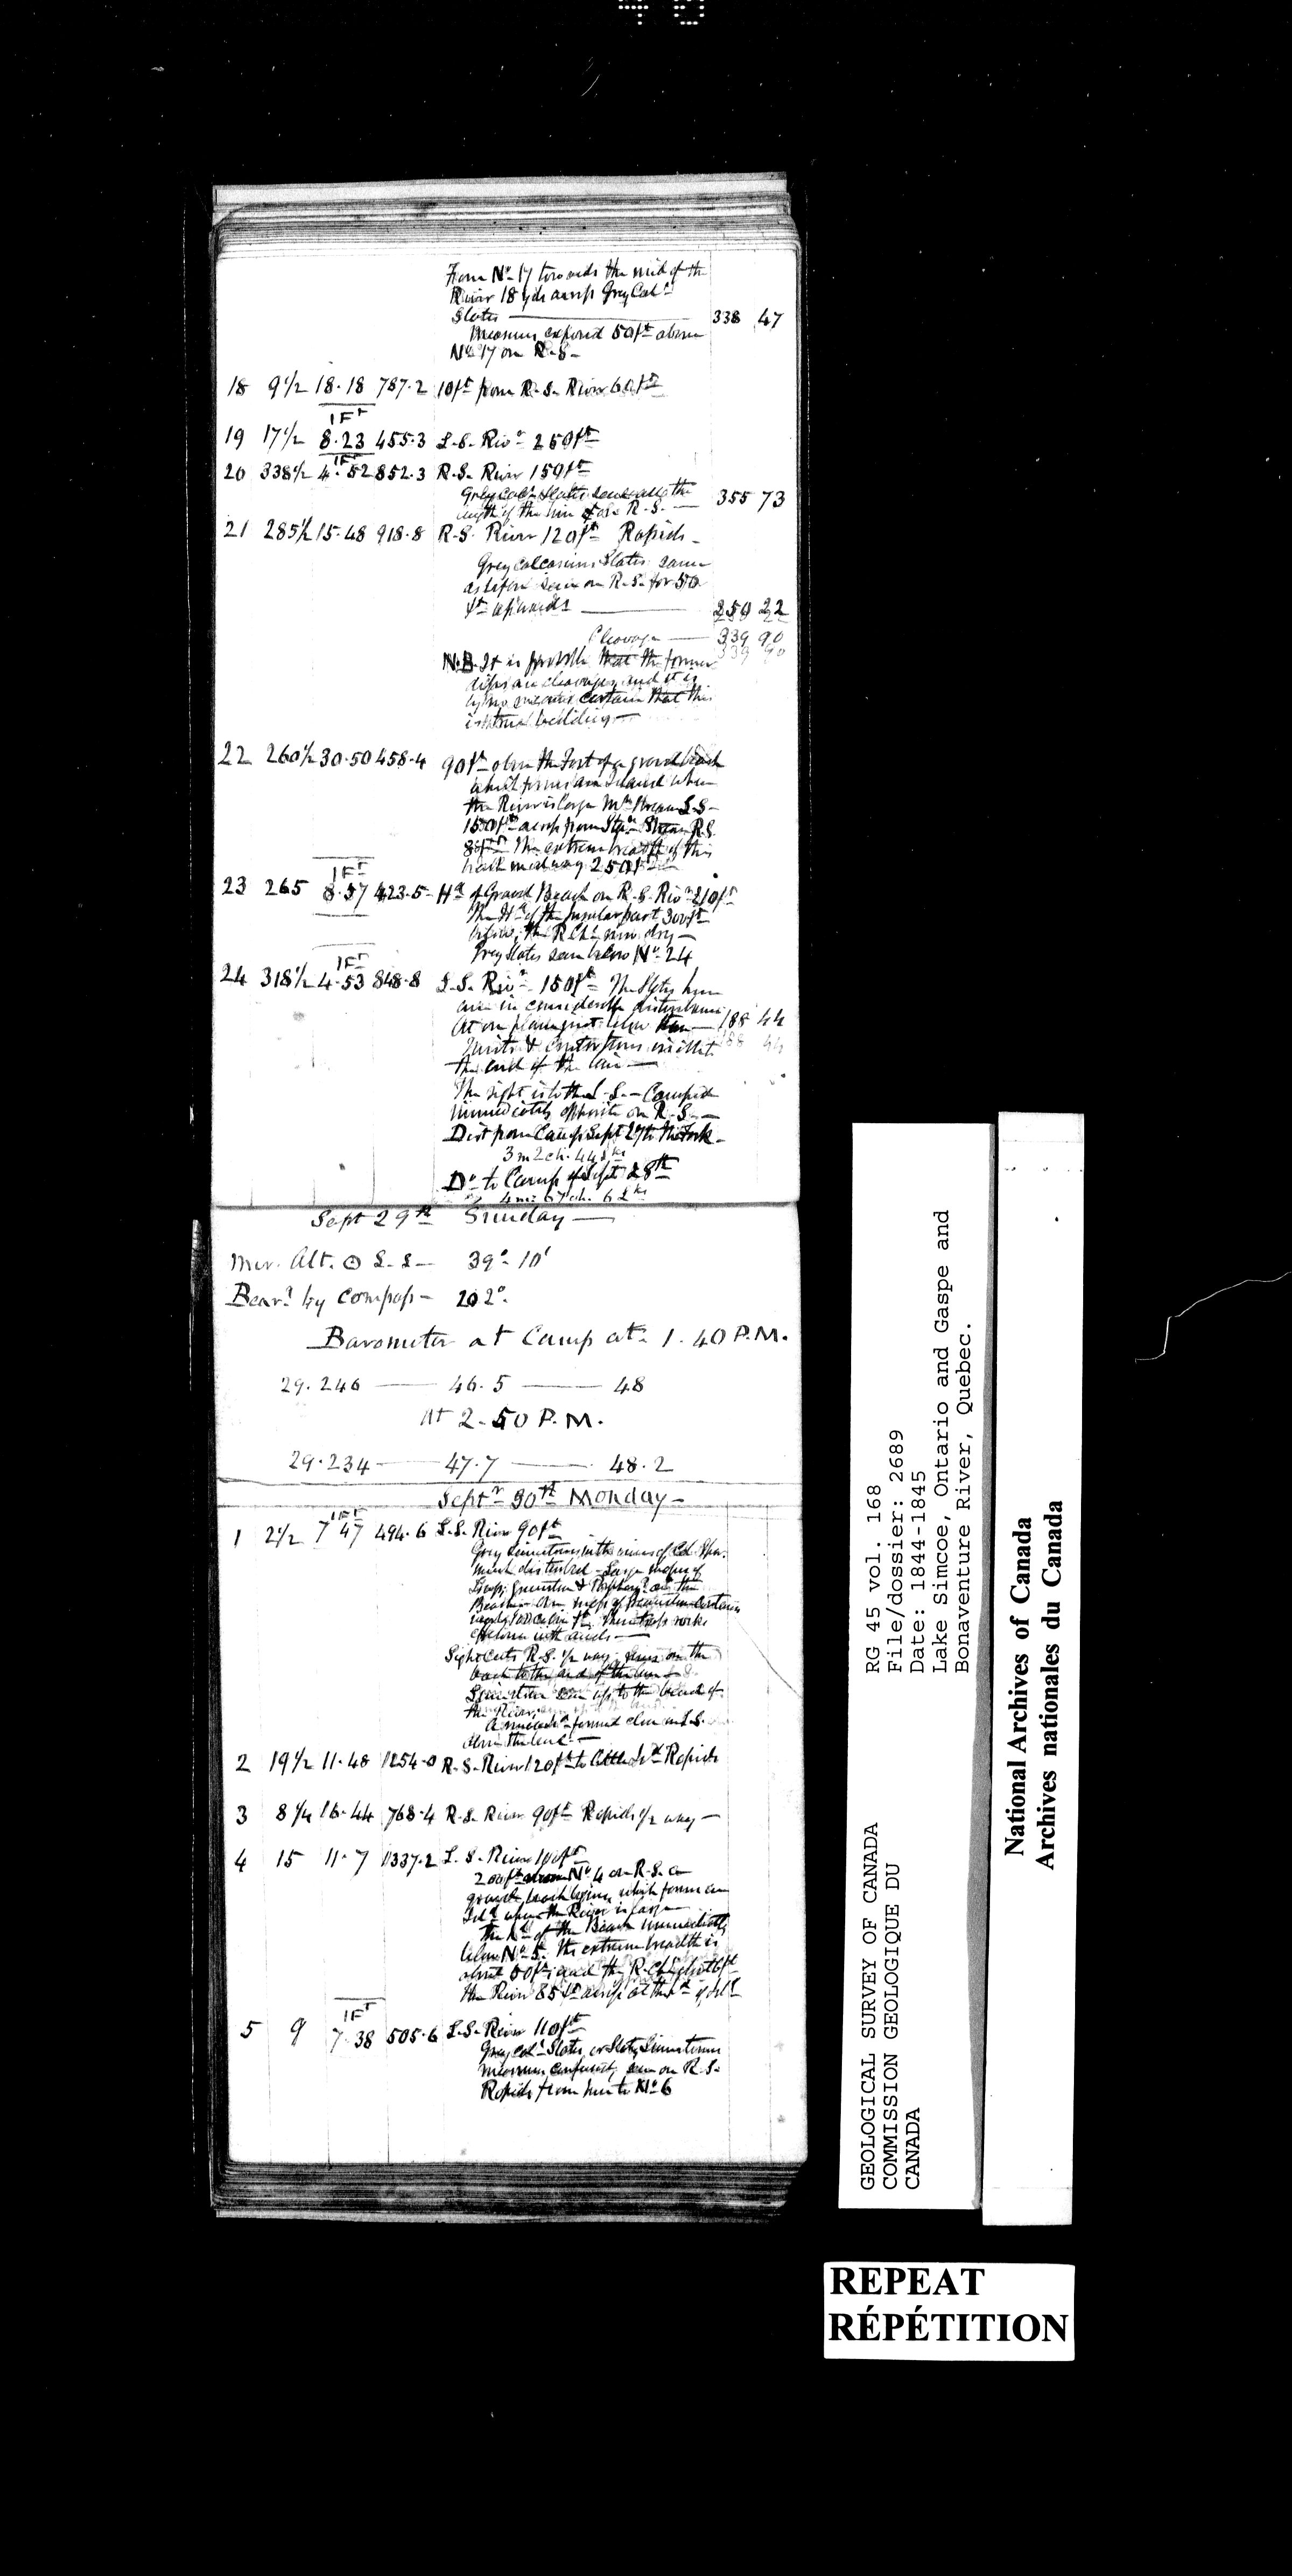 From No 17 towards the mid of the
River 18 yds across Grey Calc
Slates — 338 47
Measures exposed 50 ft above
No 17 on R.S.
18 9½ 18.18 787.2 10ft from R.S. River 60 ft
1 Ft
19 17½ 8.23 455.3 L.S. Rivr 250ft
1 Ft
20 338½ 4.52 852.3 R.S. River 150ft
Grey Calc Slates seen all the
length of the line on R.S. — 355 73
21 285½ 15.48 918.8 R.S. River 120ft Rapids
Grey calcareous Slates same
as before seen on R.S. for 50
ft upwards — 250 22
Cleavage — 339 90
N.B. It is probable that the former
dips are cleavages and it is
by no means certain that this
is the true bedding —
22 260½ 30.50 458.4 90ft above the foot of a gravel beach
which forms an Island when
the River is large Mn Stream L.S.
150ft across from Stan R.S.
The extreme breadth of this
beach midway 250ft
1 Ft
23 265 8.57 423.5 Hd of Gravel Beach on R.S. Rivr 210ft
The Hd of the Insular part 300ft
below, the R. Chl now dry —
Grey Slates seen below No 24
1 Ft
24 318½ 4.53 848.8 L.S. Rivr 150ft The Slates here
are in considerable disturbance
At one place just below — 188 44
Twists & contortions exist at
the end of the line —
The sight is to the L.S. — Camped
immediately opposite on R.S. —
Dist from Camp Sept 27th the Fork
3 m 2 ch. 44 lks
Do to Camp of Sept 28th
4 m: 67 ch. 62 lks
Sept 29th Sunday —
Mer. Alt. ☉ L.L. — 39° 10'
Bearg by Compass — 202°
Barometer at Camp at 1.40 P.M.
29.246 — 46.5 — 48
At 2.50 P.M.
29.234 — 47.7 — 48.2
Septr 30th Monday —
1 Ft
1 2½ 7.47 494.6 L.S. River 90ft
Grey Limestones with veins of Cal Spar
much disturbed — Large masses of
Trap, Greenstone & Porphyry on the
Beach
these trap rocks
effervesce with acids —
Sight cuts R.S. ½ way
beach to the end of the line
Limestone seen up to the bend of
the River
formed close on L.S.
2 19½ 11.48 1254.0 R.S. River 120ft to Rapids
3 8¼ 16.44 768.4 R.S. River 90ft Rapids ½ way —
4 15 11.7 1337.2 L.S. River 100ft
200ft above No 4 on R.S. a
gravel beach begins which forms an
Isld when the River is large
the hd of the Beach immediately
below No 5. The extreme breadth is
about 50ft and the R. Chl about 6ft
the River 85ft across at the hd of Isld
1 Ft
5 9 7.38 505.6 L.S. River 110ft
Grey Calc Slates or Slaty Limestones
measures confused, seen on R.S.
Rapids from here to No 6
GEOLOGICAL SURVEY OF CANADA
COMMISSION GEOLOGIQUE DU
CANADA
RG 45 vol. 168
File/dossier: 2689
Date: 1844-1845
Lake Simcoe, Ontario and Gaspe and
Bonaventure River, Quebec.
National Archives of Canada
Archives nationales du Canada
REPEAT
RÉPÉTITION